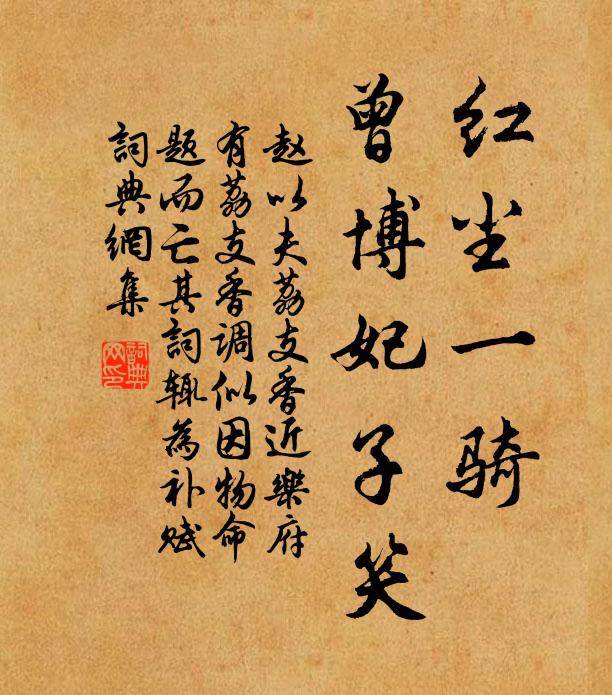 红尘一骑
曾博妃子笑
赵以夫荔支香近樂府
有荔支香调似因物命
题而亡其詞辄為补赋
詞典網集
詞典
网印